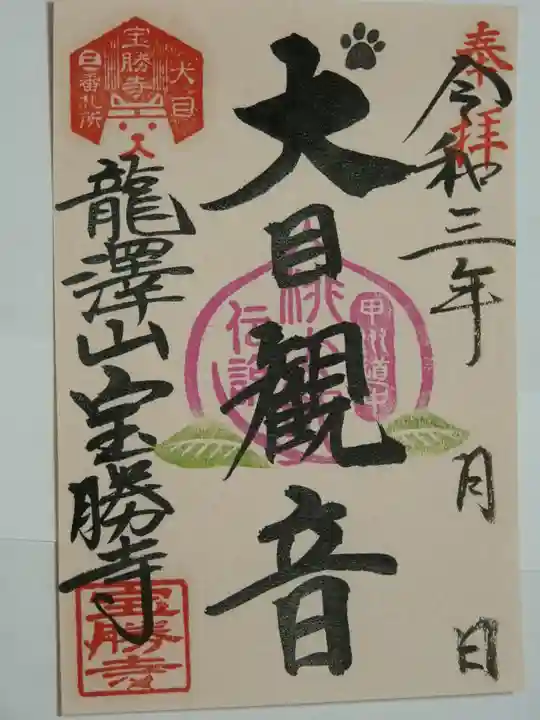 奉拝
令和三年 月 日
犬目観音
甲州道中
桃太郎
伝説
龍澤山宝勝寺
犬目
宝勝寺
宝勝寺